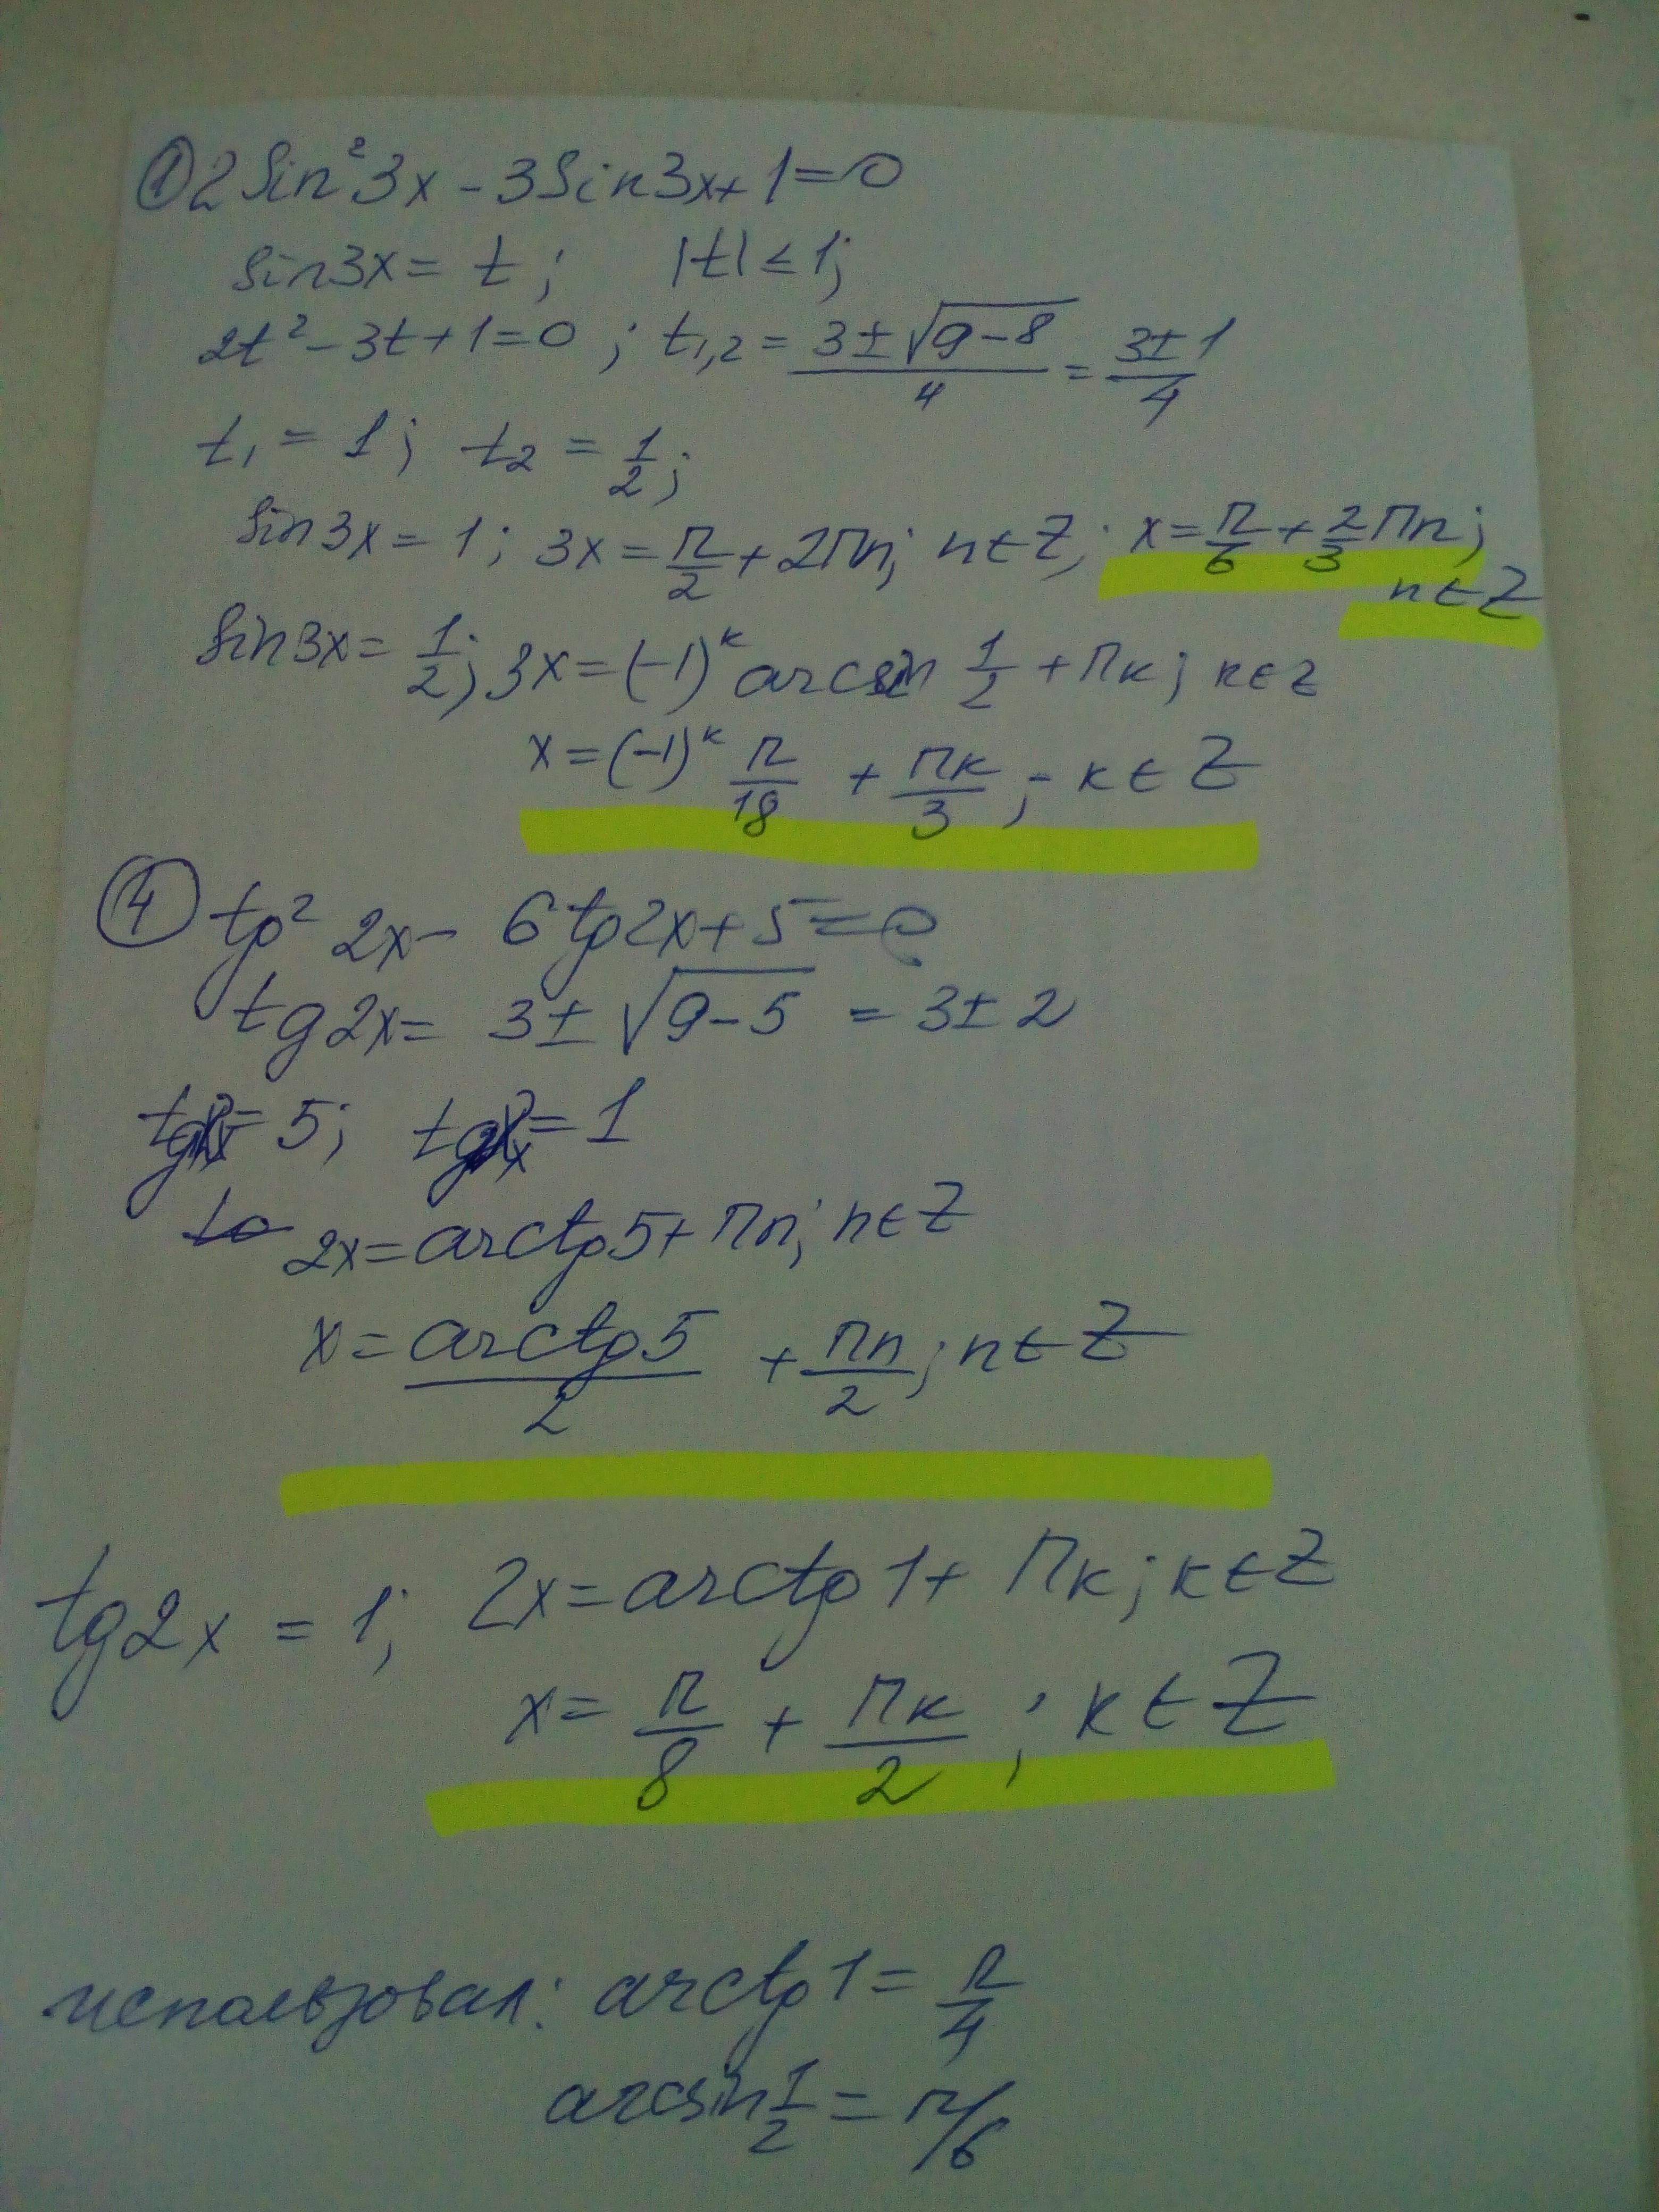 ① 2 Sin²3x - 3Sin3x + 1 = 0
Sin3x = t ; |t| ≤ 1;
2t² - 3t + 1 = 0 ; t₁,₂ = (3 ± √(9-8))/4 = (3 ± 1)/4
t₁ = 1; t₂ = 1/2;
Sin3x = 1; 3x = π/2 + 2πn; n∈Z; x = π/6 + 2/3 πn;
n∈Z
Sin3x = 1/2; 3x = (-1)ᵏ arcsin 1/2 + πк; к∈z
x = (-1)ᵏ π/18 + πк/3 ; к∈Z
④ tg² 2x - 6 tg2x + 5 = 0
tg2x = 3 ± √(9-5) = 3 ± 2
tg2x = 5; tg2x = 1
2x = arctg5 + πn; n∈Z
x = arctg5/2 + πn/2; n∈Z
tg2x = 1; 2x = arctg1 + πк; к∈Z
x = π/8 + πк/2 ; к∈Z
использовал: arctg1 = π/4
arcsin 1/2 = π/6